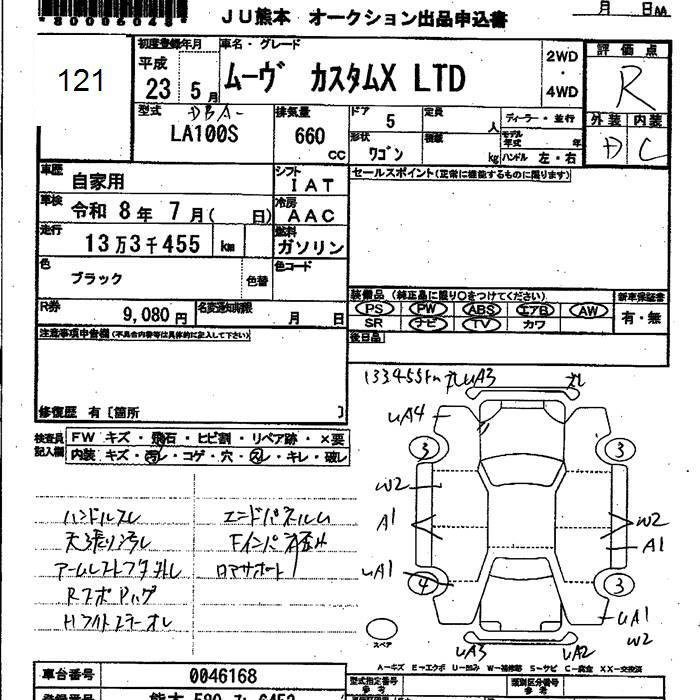 *80006048*
JU熊本 オークション出品申込書
月 日
121
初度登録年月
平成
23 5月
車名・グレード
ムーヴ カスタムX LTD
2WD
・
4WD
評価点
R
型式
DBA-
LA100S
排気量
660
cc
ドア
5
定員
人
ディーラー・並行
形状
ワゴン
積載
kg
モデル年式
年
ハンドル 左・右
外装 内装
D C
車歴
自家用
シフト
IAT
セールスポイント(正常に機能するものに限ります)
車検
令和 8年 7月( 日)
冷房
AAC
走行
13万3千455 km
燃料
ガソリン
色
ブラック
色替
色コード
R券
9,080円
名変通知期限
月 日
装備品 (純正品に限り○をつけてください)
新車保証書
PS PW ABS エアB AW
有・無
SR ナビ TV カワ
後日品
注意事項申告欄(不具合内容等は具体的に記入して下さい)
修復歴 有〔箇所 〕
検査員記入欄
FW キズ・飛石・ヒビ割・リペア跡・×要
内装 キズ・汚レ・コゲ・穴・スレ・キレ・破レ
133455km
UA3
UA4
3 3
W2
A1
W2
A1
UA1
4 3
UA1
W2
UA3
UA2
スペア
ハンドルスレ
天張り汚レ
アームレストフタ外レ
エンドパネルム
ロアサポート
A−キズ E−エクボ U−凹み W−補修跡 S−サビ C−腐食 XX−交換済
車台番号
0046168
型式指定番号
参考
類別区分番号
参考
登録番号
熊本 580